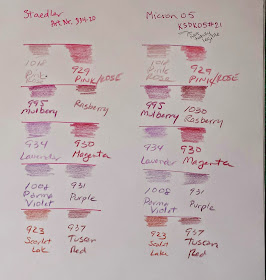 Staedler
Art. Nr. 314-20
1018
Pink
Rose
929
PINK/ROSE
995
Mulberry
Rasberry
934
Lavender
930
Magenta
1008
Parma
Violet
931
Purple
923
Scarlet
Lake
937
Tuscan
Red
Micron 05
XSDK05#21
1018
PINK
ROSE
929
PINK/ROSE
995
Mulberry
1030
Rasberry
934
Lavender
930
Magenta
1008
Parma
Violet
931
Purple
923
Scarlet
Lake
937
Tuscan
Red